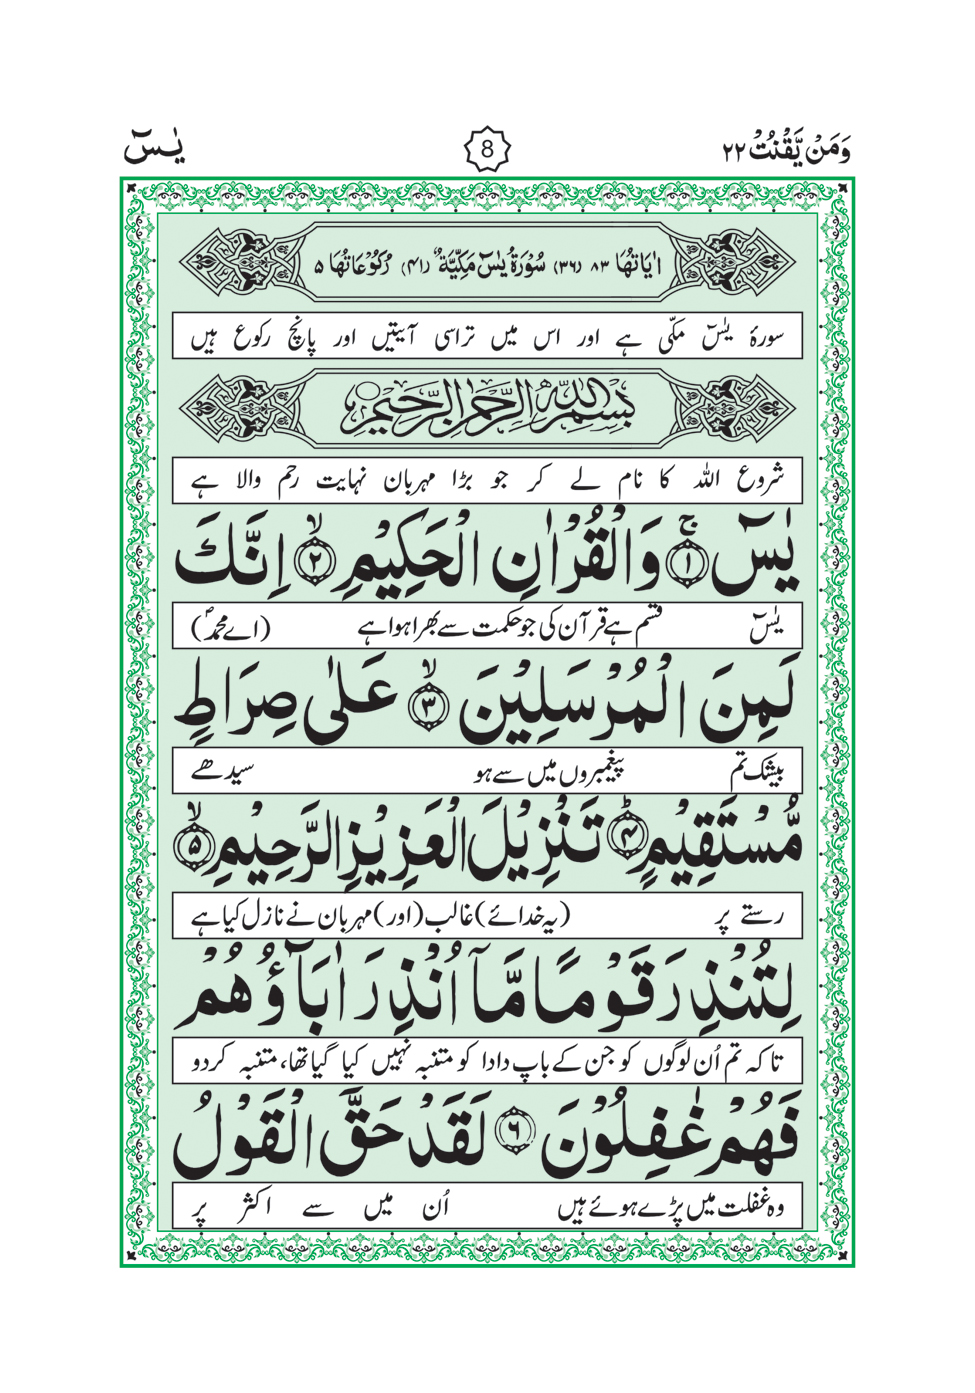 وَمَنْ يَّقْنُتْ ۲۲ 8 يٰسٓ
اٰيَاتُهَا ۸۳ (۳۶) سُوْرَةُ يٰسٓ مَكِّيَّةٌ (۴۱) رُكُوْعَاتُهَا ۵
سورۂ یٰسٓ مکّی ہے اور اس میں تراسی آیتیں اور پانچ رکوع ہیں
بِسْمِ اللّٰهِ الرَّحْمٰنِ الرَّحِيْمِ
شروع اللہ کا نام لے کر جو بڑا مہربان نہایت رحم والا ہے
يٰسٓ ۚ﴿۱﴾ وَالْقُرْاٰنِ الْحَكِيْمِ ۙ﴿۲﴾ اِنَّكَ
یٰسٓ قسم ہے قرآن کی جو حکمت سے بھرا ہوا ہے (اے محمدؐ)
لَمِنَ الْمُرْسَلِيْنَ ۙ﴿۳﴾ عَلٰى صِرَاطٍ
بیشک تم پیغمبروں میں سے ہو سیدھے
مُّسْتَقِيْمٍ ؕ﴿۴﴾ تَنْزِيْلَ الْعَزِيْزِ الرَّحِيْمِ ۙ﴿۵﴾
رستے پر (یہ خدائے) غالب (اور) مہربان نے نازل کیا ہے
لِتُنْذِرَ قَوْمًا مَّاۤ اُنْذِرَ اٰبَآؤُهُمْ
تاکہ تم اُن لوگوں کو جن کے باپ دادا کو متنبہ نہیں کیا گیا تھا، متنبہ کردو
فَهُمْ غٰفِلُوْنَ ﴿۶﴾ لَقَدْ حَقَّ الْقَوْلُ
وہ غفلت میں پڑے ہوئے ہیں اُن میں سے اکثر پر